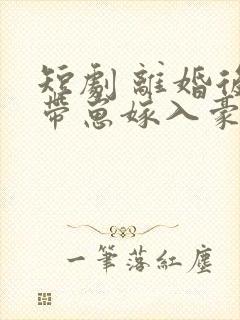 短劇 離婚後
帶崽嫁入豪
一筆落紅塵